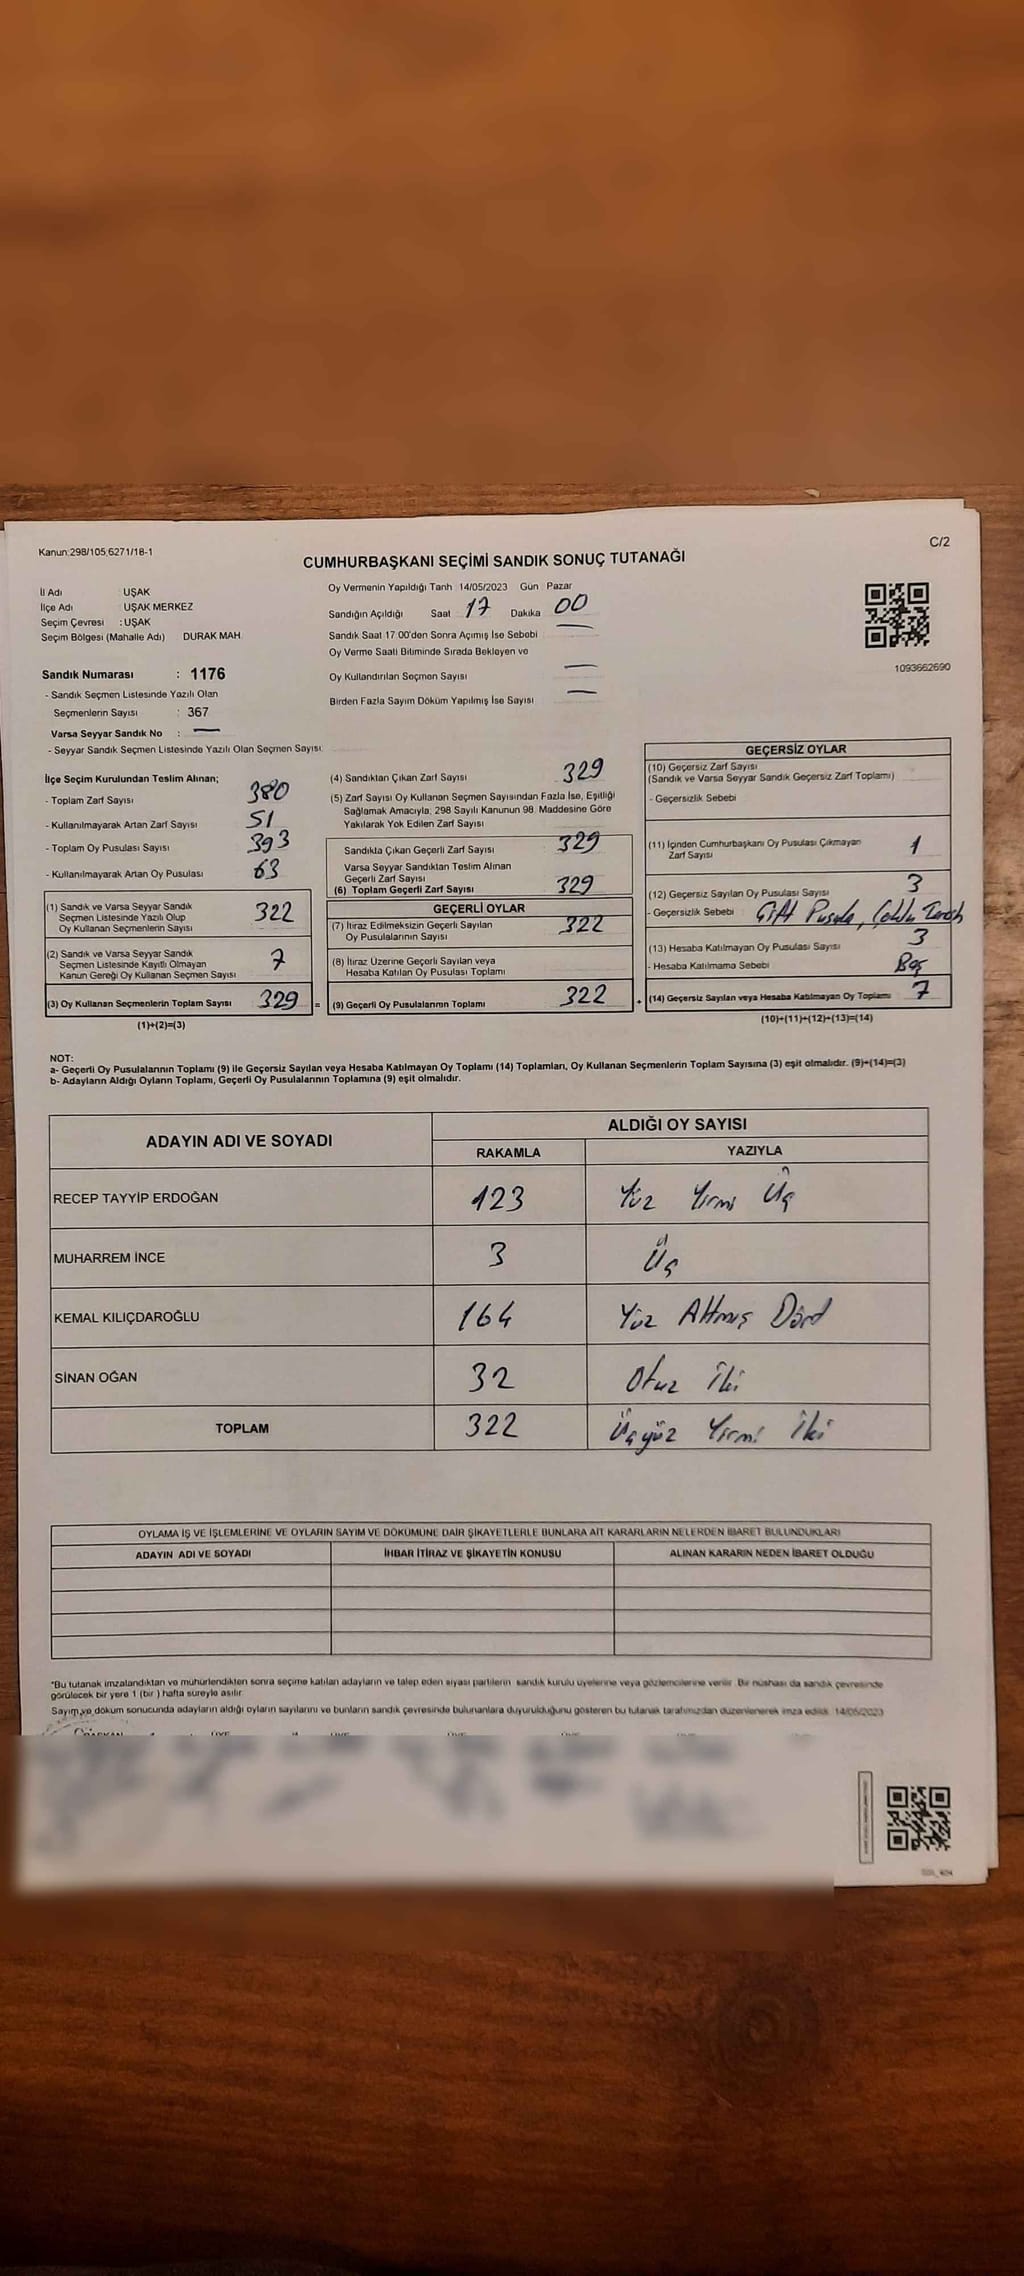 Kanun:298/105,6271/18-1
C/2
CUMHURBAŞKANI SEÇİMİ SANDIK SONUÇ TUTANAĞI
İl Adı : UŞAK
İlçe Adı : UŞAK MERKEZ
Seçim Çevresi : UŞAK
Seçim Bölgesi (Mahalle Adı) DURAK MAH.
Oy Vermenin Yapıldığı Tarih 14/05/2023 Gün Pazar
Sandığın Açıldığı Saat 17 Dakika 00
Sandık Saat 17 00'den Sonra Açımış İse Sebebi —
Oy Verme Saati Bitiminde Sırada Bekleyen ve
Oy Kullandırılan Seçmen Sayısı —
Birden Fazla Sayım Döküm Yapılmış İse Sayısı —
1093662690
Sandık Numarası : 1176
- Sandık Seçmen Listesinde Yazılı Olan
Seçmenlerin Sayısı : 367
Varsa Seyyar Sandık No : —
- Seyyar Sandık Seçmen Listesinde Yazılı Olan Seçmen Sayısı:
İlçe Seçim Kurulundan Teslim Alınan;
- Toplam Zarf Sayısı 380
- Kullanılmayarak Artan Zarf Sayısı 51
- Toplam Oy Pusulası Sayısı 393
- Kullanılmayarak Artan Oy Pusulası 63
(1) Sandık ve Varsa Seyyar Sandık
Seçmen Listesinde Yazılı Olup
Oy Kullanan Seçmenlerin Sayısı 322
(2) Sandık ve Varsa Seyyar Sandık
Seçmen Listesinde Kayıtlı Olmayan
Kanun Gereği Oy Kullanan Seçmen Sayısı 7
(3) Oy Kullanan Seçmenlerin Toplam Sayısı 329 =
(1)+(2)=(3)
(4) Sandıktan Çıkan Zarf Sayısı 329
(5) Zarf Sayısı Oy Kullanan Seçmen Sayısından Fazla İse, Eşitliği
Sağlamak Amacıyla; 298 Sayılı Kanunun 98. Maddesine Göre
Yakılarak Yok Edilen Zarf Sayısı
Sandıkta Çıkan Geçerli Zarf Sayısı 329
Varsa Seyyar Sandıktan Teslim Alınan
Geçerli Zarf Sayısı
(6) Toplam Geçerli Zarf Sayısı 329
GEÇERLİ OYLAR
(7) İtiraz Edilmeksizin Geçerli Sayılan
Oy Pusulalarının Sayısı 322
(8) İtiraz Üzerine Geçerli Sayılan veya
Hesaba Katılan Oy Pusulası Toplamı
(9) Geçerli Oy Pusulalarının Toplamı 322 +
GEÇERSİZ OYLAR
(10) Geçersiz Zarf Sayısı
(Sandık ve Varsa Seyyar Sandık Geçersiz Zarf Toplamı)
- Geçersizlik Sebebi
(11) İçinden Cumhurbaşkanı Oy Pusulası Çıkmayan
Zarf Sayısı 1
(12) Geçersiz Sayılan Oy Pusulası Sayısı 3
- Geçersizlik Sebebi Çift Pusula,
(13) Hesaba Katılmayan Oy Pusulası Sayısı 3
- Hesaba Katılmama Sebebi Boş
(14) Geçersiz Sayılan veya Hesaba Katılmayan Oy Toplamı 7
(10)+(11)+(12)+(13)=(14)
NOT:
a- Geçerli Oy Pusulalarının Toplamı (9) ile Geçersiz Sayılan veya Hesaba Katılmayan Oy Toplamı (14) Toplamları, Oy Kullanan Seçmenlerin Toplam Sayısına (3) eşit olmalıdır. (9)+(14)=(3)
b- Adayların Aldığı Oyların Toplamı, Geçerli Oy Pusulalarının Toplamına (9) eşit olmalıdır.
ADAYIN ADI VE SOYADI
ALDIĞI OY SAYISI
RAKAMLA YAZIYLA
RECEP TAYYİP ERDOĞAN 123 Yüz Yirmi Üç
MUHARREM İNCE 3 Üç
KEMAL KILIÇDAROĞLU 164 Yüz Altmış Dörd
SİNAN OĞAN 32 Otuz İki
TOPLAM 322 Üçyüz Yirmi İki
OYLAMA İŞ VE İŞLEMLERİNE VE OYLARIN SAYIM VE DÖKÜMÜNE DAİR ŞİKAYETLERLE BUNLARA AİT KARARLARIN NELERDEN İBARET BULUNDUKLARI
ADAYIN ADI VE SOYADI İHBAR İTİRAZ VE ŞİKAYETİN KONUSU ALINAN KARARIN NEDEN İBARET OLDUĞU
*Bu tutanak imzalandıktan ve mühürlendikten sonra seçime katılan adayların ve talep eden siyasi partilerin sandık kurulu üyelerine veya gözlemcilerine verilir. Bir nüshası da sandık çevresinde
görülecek bir yere 1 (bir ) hafta süreyle asılır.
Sayım ve döküm sonucunda adayların aldığı oyların sayılarını ve bunların sandık çevresinde bulunanlara duyurulduğunu gösteren bu tutanak tarafımızdan düzenlenerek imza edildi. 14/05/2023
BAŞKAN ÜYE ÜYE ÜYE ÜYE